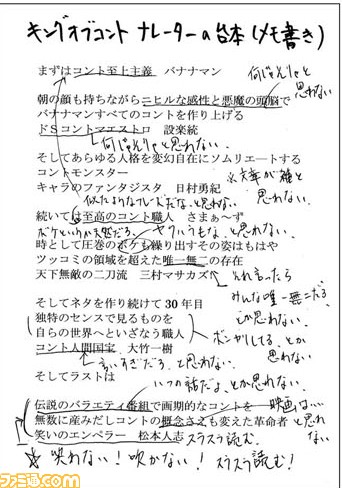 キングオブコント ナレーターの台本(メモ書き)
まずはコント至上主義 バナナマン
何じゃそりゃと
思わない
朝の顔も持ちながらニヒルな感性と悪魔の頭脳で
バナナマンすべてのコントを作り上げる
ドSコントマエストロ 設楽統
何じゃそりゃと思わない。
そしてあらゆる人格を変幻自在にソムリエートする
コントモンスター
キャラのファンタジスタ 日村勇紀
思わない。
似たようなフレーズだな、と思わない。
続いては至高のコント職人 さまぁ~ず
と思わない。
時として圧巻のボケも繰り出すその姿はもはや
ツッコミの領域を超えた唯一無二の存在
天下無敵の二刀流 三村マサカズ
それ言ったら
みんな唯一無二だろ
とか思わない。
そしてネタを作り続けて30年目
独特のセンスで見るものを
自らの世界へといざなう職人
コント人間国宝 大竹一樹
とか
思わない
言いすぎだろ、と思わない。
そしてラストは
いつの話だよ、とか思わない。
伝説のバラエティ番組で画期的なコントを
映画は
無数に産みだしコントの概念さえも変えた革命者
と思わない
笑いのエンペラー 松本人志
スラスラ読む。
☆笑わない!吹かない!スラスラ読む!
ファミ通.com